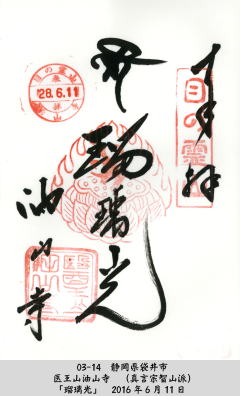 奉拝
目の霊山
瑠璃光
油山寺
目の霊山
'28.6.11
油山寺
03-14 静岡県袋井市
医王山油山寺 (真言宗智山派)
「瑠璃光」 2016年6月11日